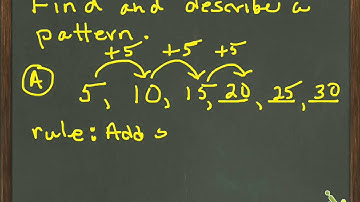 Find and describe a
pattern.
+5 +5 +5
A 5, 10, 15, 20, 25, 30
rule: Add 5